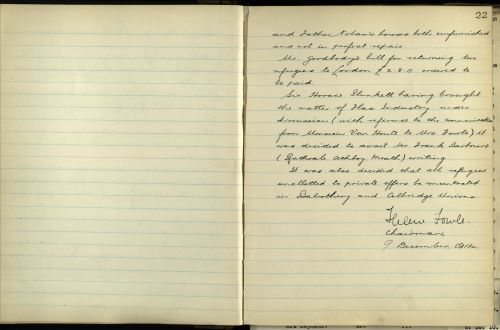 22
and Father Nolan's houses both unfurnished
and not in perfect repair
Mr Goodbody's bill for returning two
refugees to London £2 8 0 ordered to
be paid.
Sir Horace Plunkett having brought
the matter of Flax Industry under
discussion (with reference to the communication
from Monsieur Van Houte to Mrs Fowle) it
was decided to await Mr Frank Barbour's
( Athboy Meath) writing
It was also decided that all refugees
unallotted to private offers be concentrated
in Balrothery and Celbridge Unions
Helen Fowle.
Chairman,
9 December, 1914